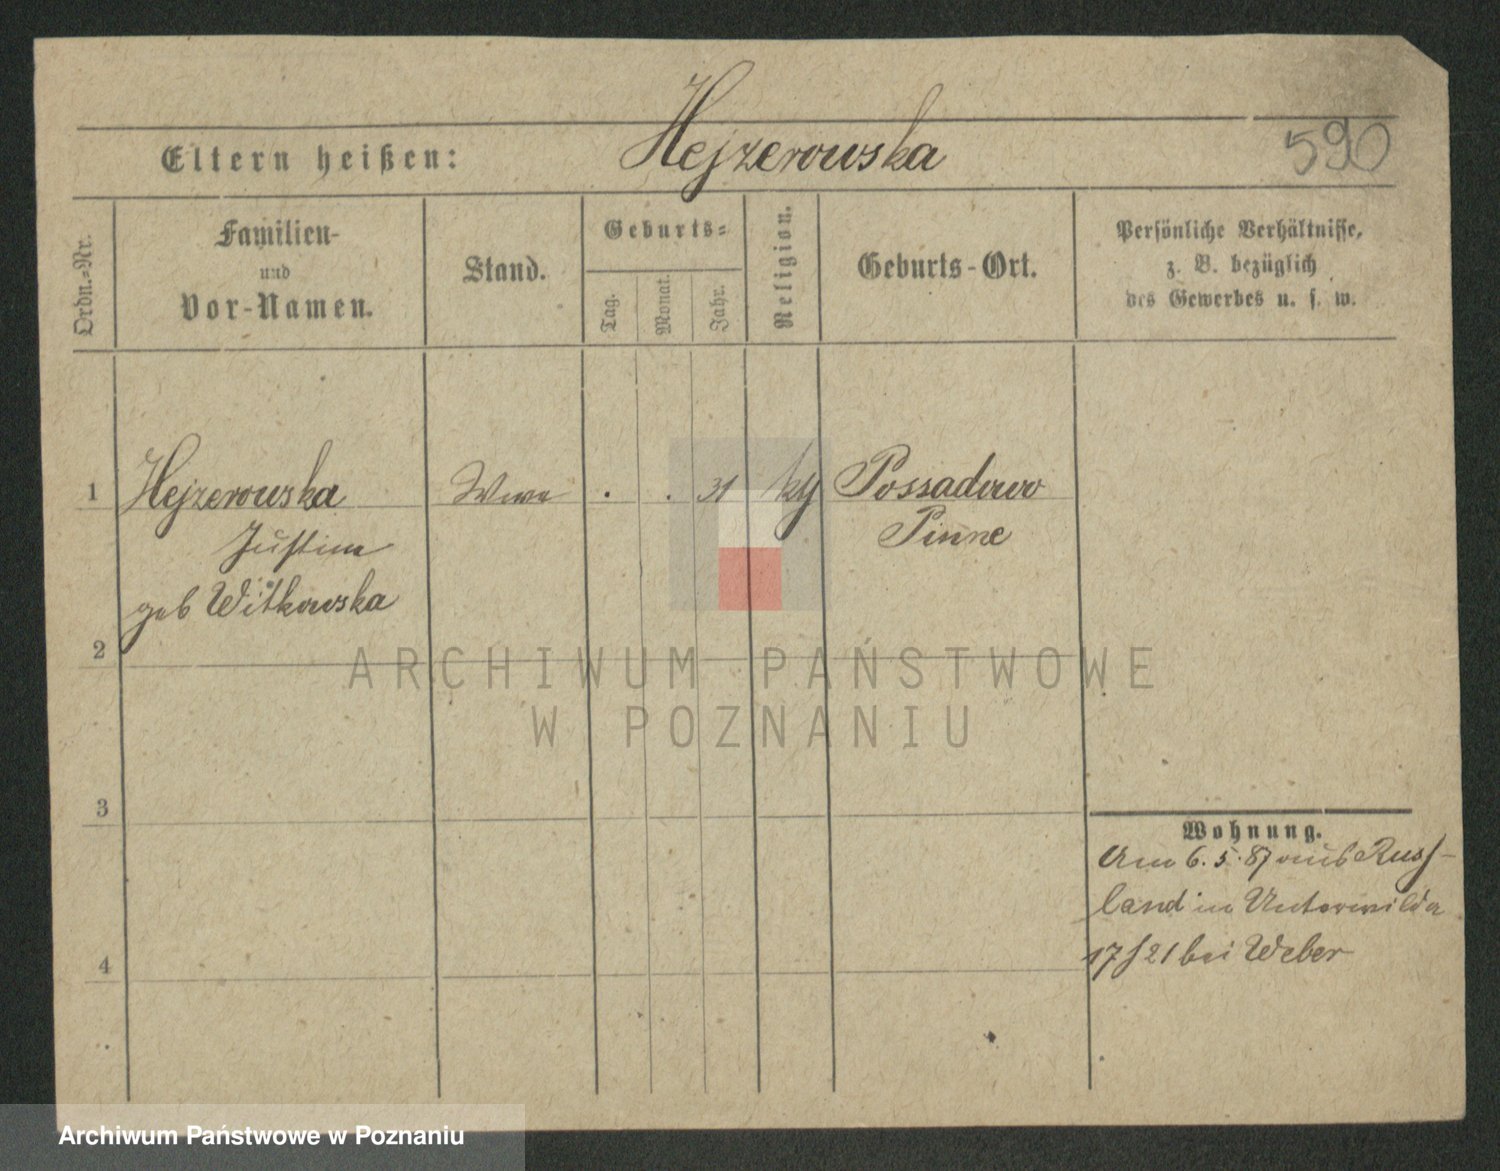 Hejzerowska
590
Eltern heißen:
Ordn.-Nr.
Familien-
und
Vor-Namen.
Stand.
Geburts-
Tag.
Monat.
Jahr.
Religion.
Geburts-Ort.
Persönliche Verhältnisse,
z. B. bezüglich
des Gewerbes u. s. w.
1 Hejzerowska Wwe . . 31 Possadowo
Justine Pinne
geb Witkowska
2
ARCHIWUM PAŃSTWOWE
W POZNANIU
3
Wohnung.
Am 6.5.87 aus Russ-
land in Unterwilda
17/21 bei Weber
4
Archiwum Państwowe w Poznaniu